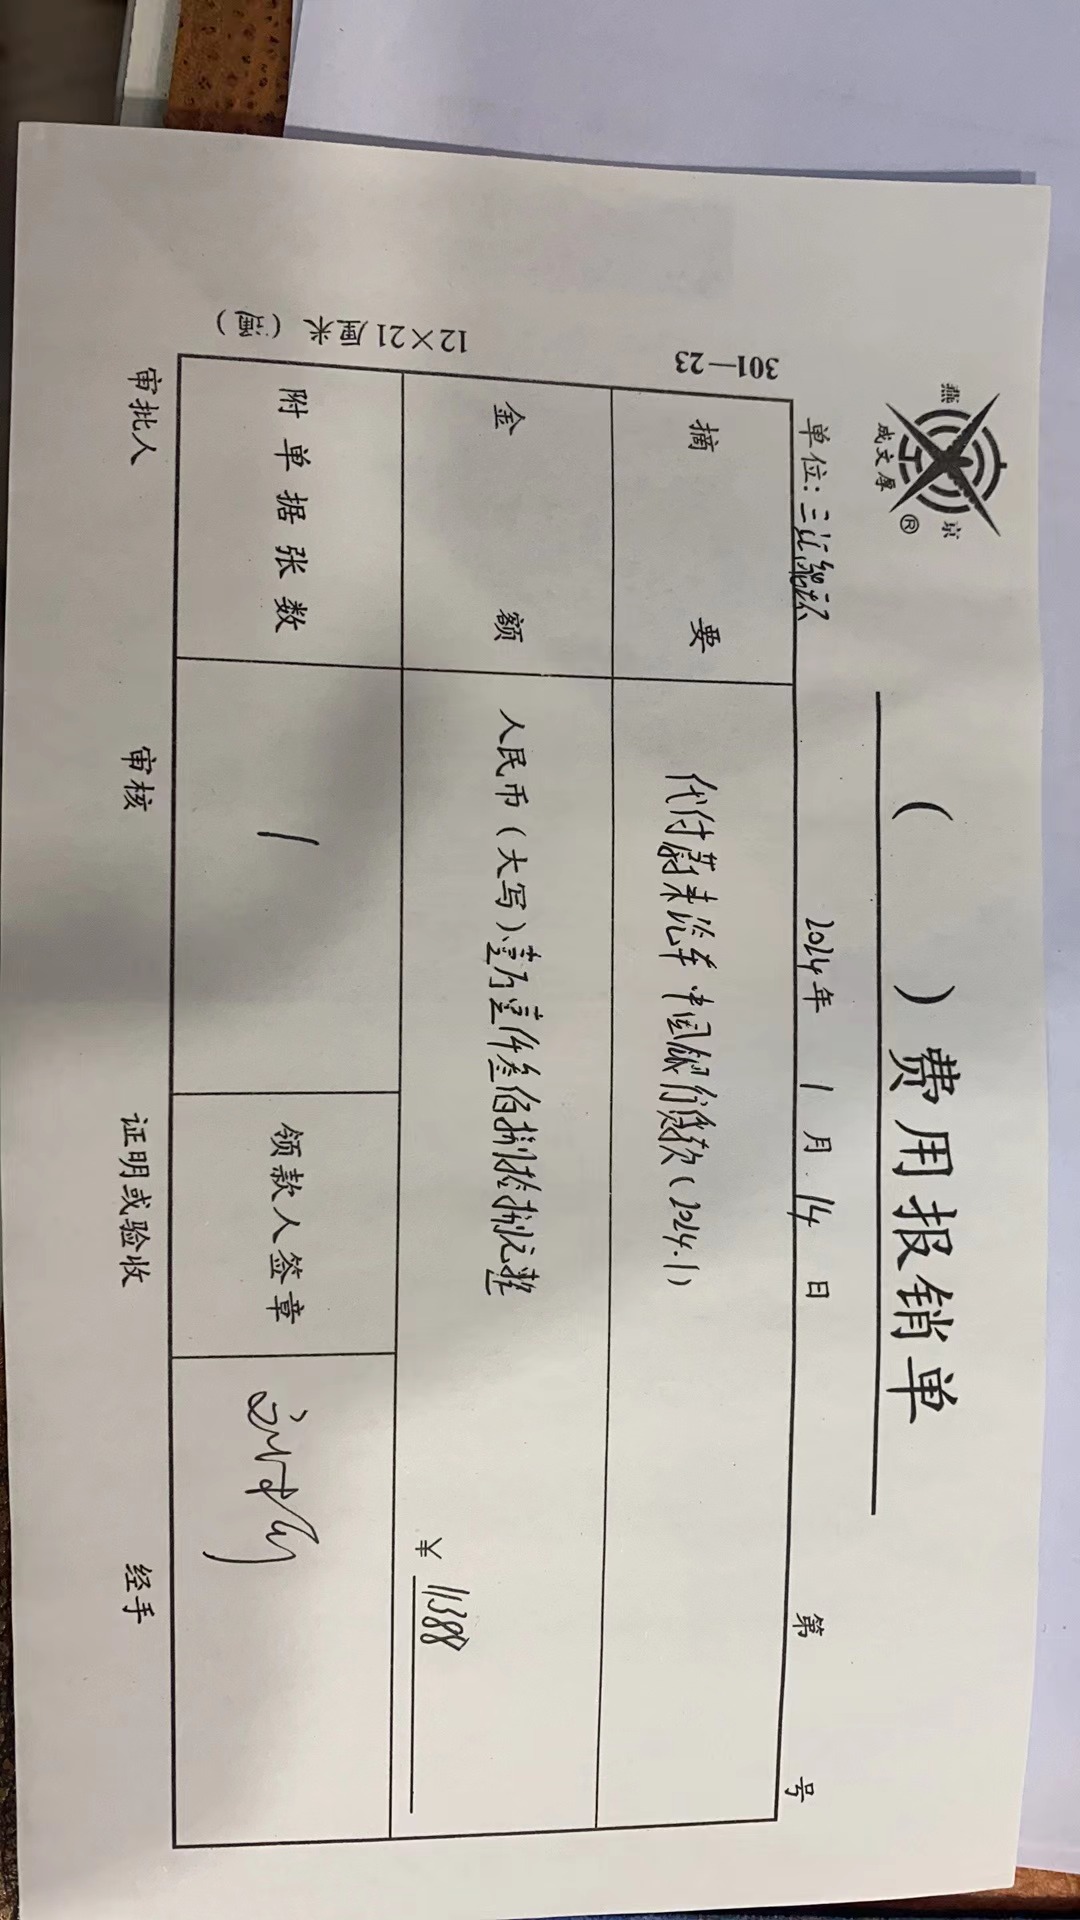 燕 京
成文厚 ®
( ) 费用报销单
单位: 三江 2024年 1月 14日 第 号
301—23
摘 要 代付蔚来汽车中国银行贷款(2024.1)
金 额 人民币(大写)壹万壹仟叁佰捌拾捌元整
¥ 11388
附单据张数 1 领款人签章
12×21厘米
审批人 审核 证明或验收 经手